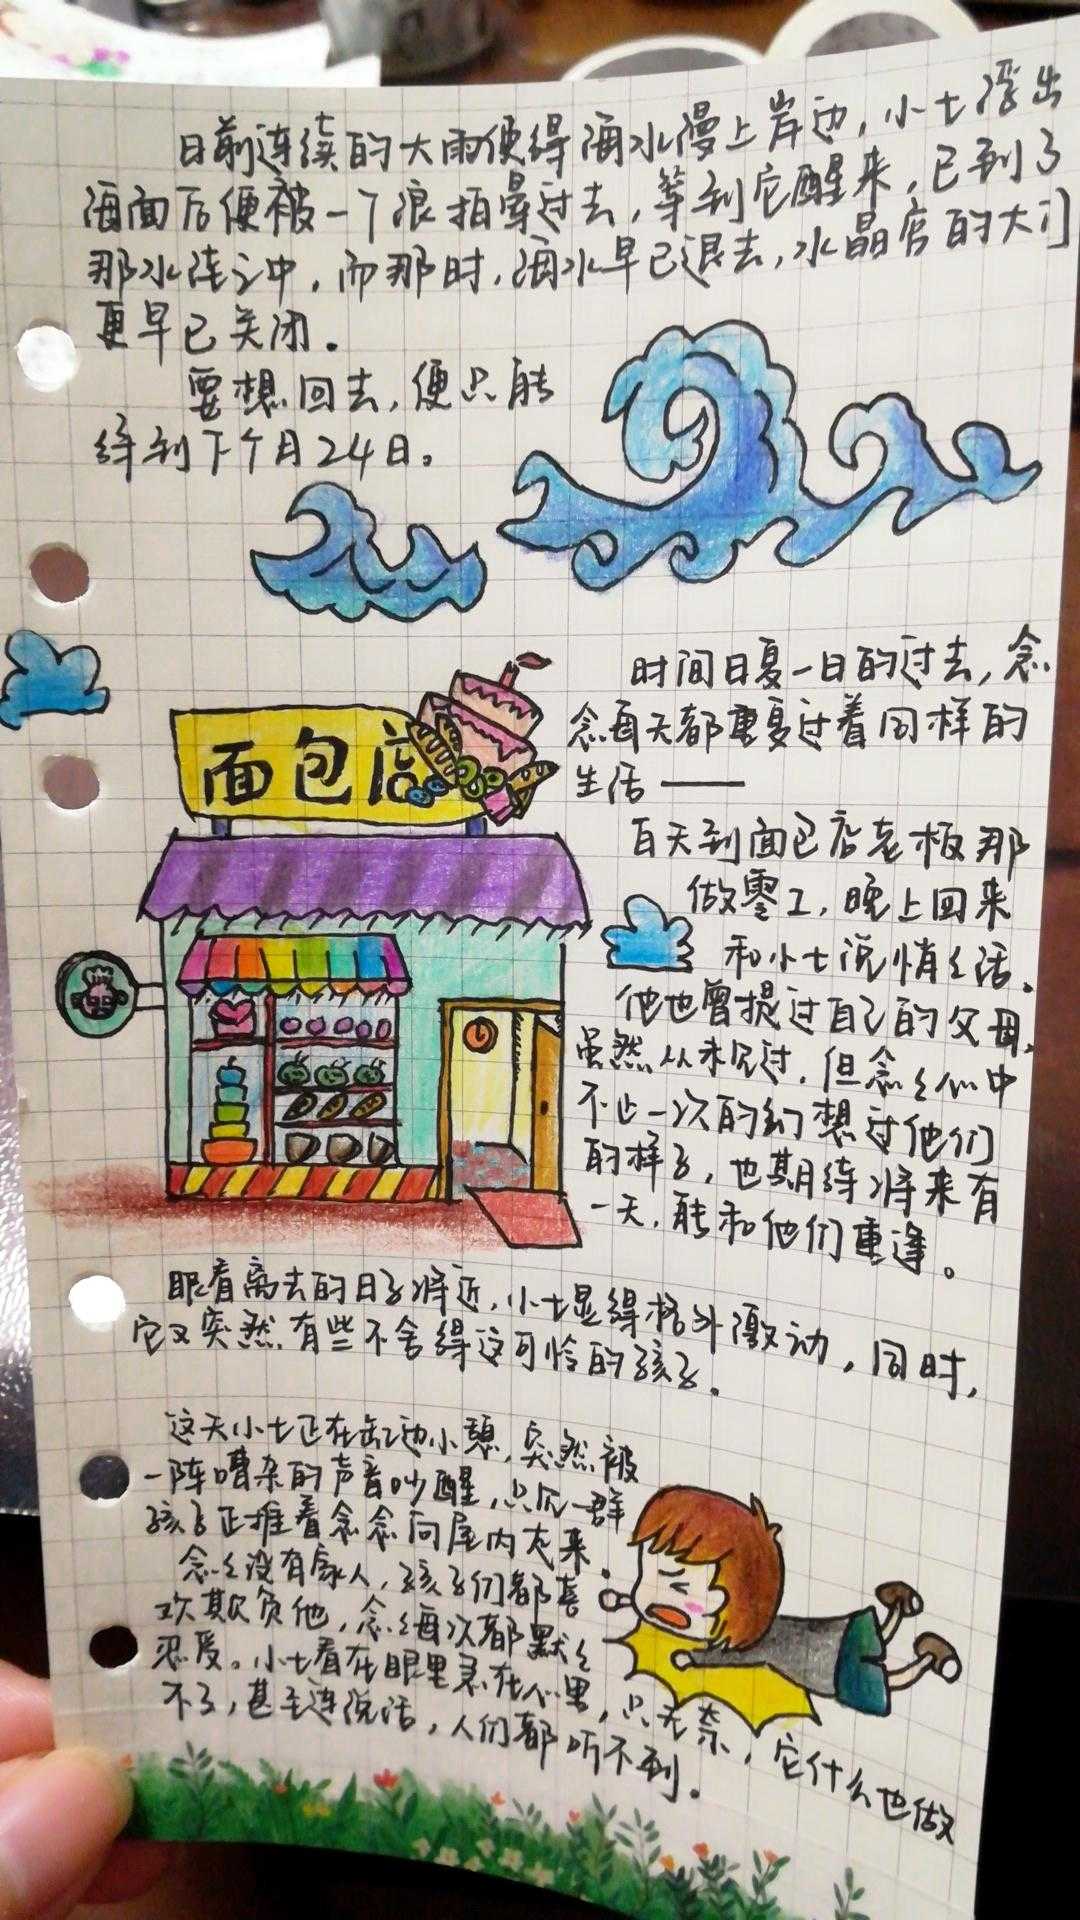 日前连续的大雨使得海水漫上岸边，小七浮出
海面后便被一个浪拍晕过去，等到它醒来，已到了
那水洼之中，而那时，海水早已退去，水晶宫的大门
更早已关闭。
要想回去，便只能
等到下个月24日。
时间日复一日的过去，念
念每天都重复过着同样的
生活——
面包店
白天到面包店老板那
做零工，晚上回来
和小七说悄悄话。
他也曾提过自己的父母，
虽然从未见过，但念念心中
不止一次的幻想过他们
的样子，也期待将来有
一天，能和他们重逢。
眼看离去的日子将近，小七显得格外激动，同时，
它又突然有些不舍得这可怜的孩子。
这天小七正在缸边小憩，突然被
一阵嘈杂的声音吵醒，只见一群
孩子正推着念念向屋内走来。
念念没有家人，孩子们都喜
欢欺负他，念念每次都默默
忍受。小七看在眼里急在心里，只无奈，它什么也做
不了，甚至连说话，人们都听不到。